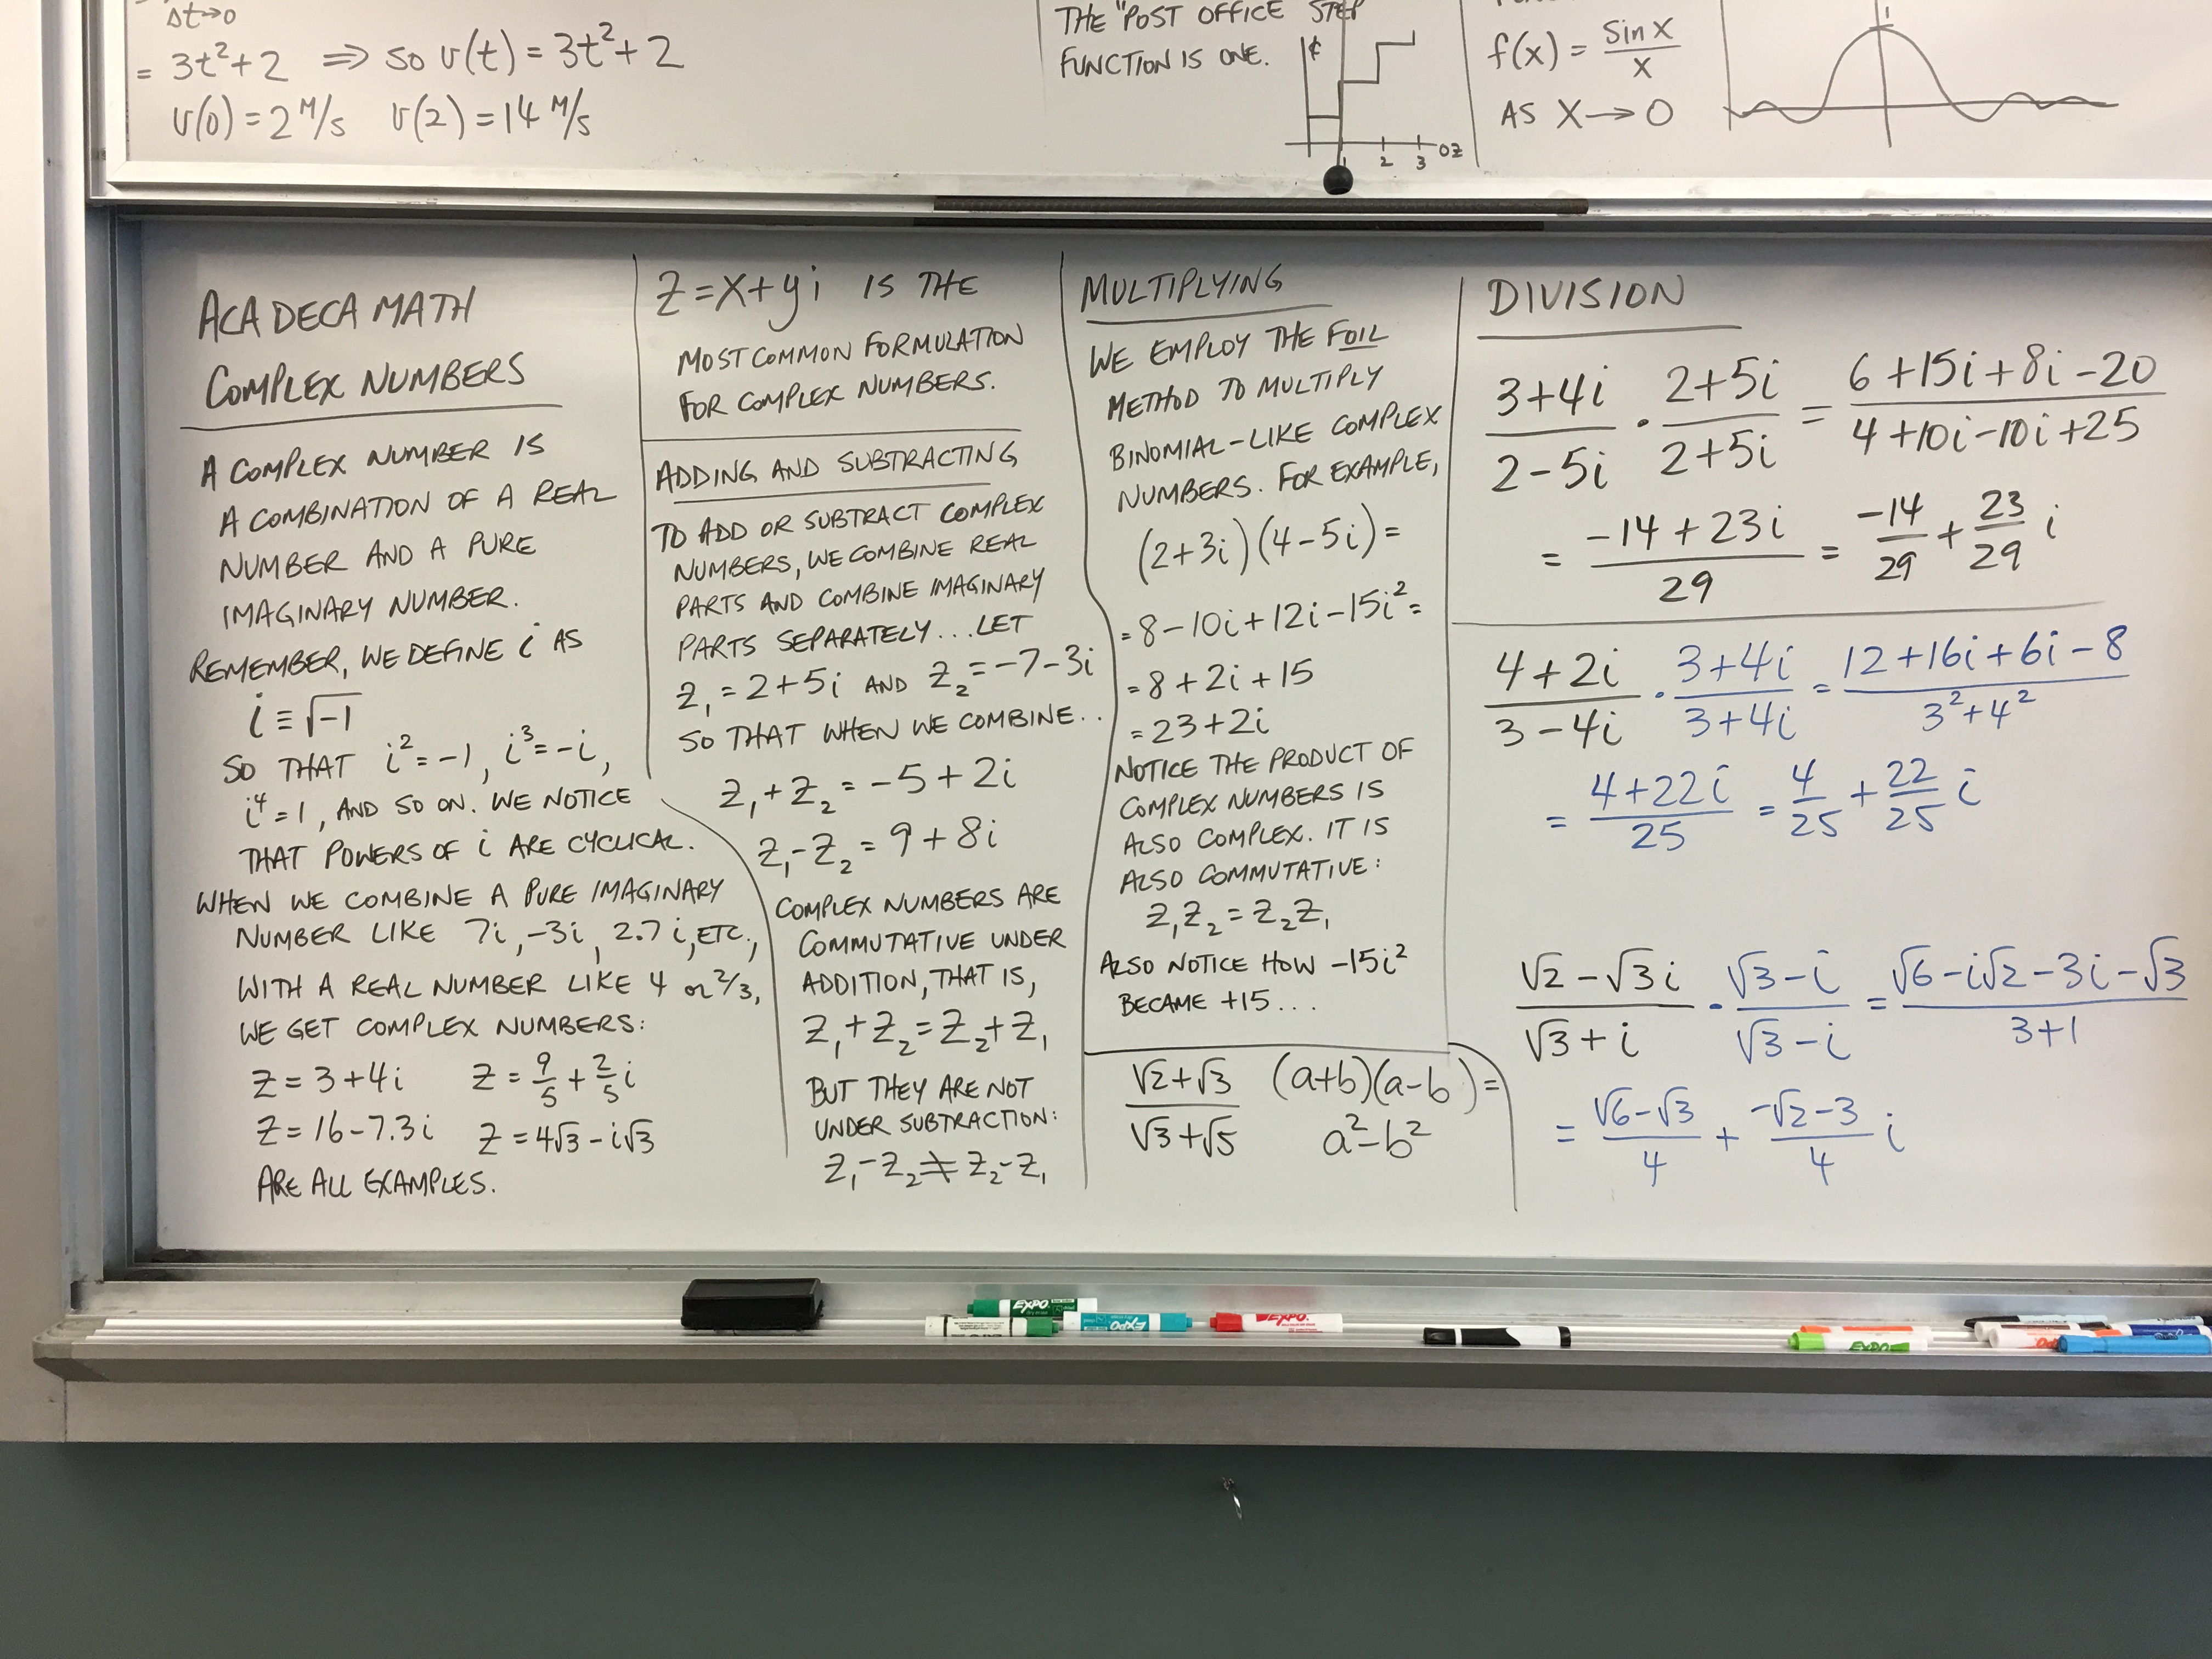 Δt→0
= 3t²+2 ⟹ so v(t) = 3t²+2
v(0) = 2 M/s v(2) = 14 M/s
THE "POST OFFICE STEP
FUNCTION IS ONE.
¢
1 2 3 oz
f(x) = sin x / x
AS X→0
1
ACADECA MATH
COMPLEX NUMBERS
A COMPLEX NUMBER IS
A COMBINATION OF A REAL
NUMBER AND A PURE
IMAGINARY NUMBER.
REMEMBER, WE DEFINE i AS
i ≡ √-1
SO THAT i² = -1, i³ = -i,
i⁴ = 1, AND SO ON. WE NOTICE
THAT POWERS OF i ARE CYCLICAL.
WHEN WE COMBINE A PURE IMAGINARY
NUMBER LIKE 7i, -3i, 2.7i, ETC.,
WITH A REAL NUMBER LIKE 4 OR 2/3,
WE GET COMPLEX NUMBERS:
Z = 3+4i Z = 9/5 + 2/5 i
Z = 16-7.3i Z = 4√3 - i√3
ARE ALL EXAMPLES.
Z = X+yi IS THE
MOST COMMON FORMULATION
FOR COMPLEX NUMBERS.
ADDING AND SUBTRACTING
TO ADD OR SUBTRACT COMPLEX
NUMBERS, WE COMBINE REAL
PARTS AND COMBINE IMAGINARY
PARTS SEPARATELY... LET
Z₁ = 2+5i AND Z₂ = -7-3i
SO THAT WHEN WE COMBINE..
Z₁+Z₂ = -5+2i
Z₁-Z₂ = 9+8i
COMPLEX NUMBERS ARE
COMMUTATIVE UNDER
ADDITION, THAT IS,
Z₁+Z₂ = Z₂+Z₁
BUT THEY ARE NOT
UNDER SUBTRACTION:
Z₁-Z₂ ≠ Z₂-Z₁
MULTIPLYING
WE EMPLOY THE FOIL
METHOD TO MULTIPLY
BINOMIAL-LIKE COMPLEX
NUMBERS. FOR EXAMPLE,
(2+3i)(4-5i) =
= 8-10i+12i-15i² =
= 8+2i+15
= 23+2i
NOTICE THE PRODUCT OF
COMPLEX NUMBERS IS
ALSO COMPLEX. IT IS
ALSO COMMUTATIVE:
Z₁Z₂ = Z₂Z₁
ALSO NOTICE HOW -15i²
BECAME +15...
(√2+√3)/(√3+√5) (a+b)(a-b) =
a²-b²
DIVISION
(3+4i)/(2-5i) · (2+5i)/(2+5i) = (6+15i+8i-20)/(4+10i-10i+25)
= (-14+23i)/29 = -14/29 + 23/29 i
(4+2i)/(3-4i) · (3+4i)/(3+4i) = (12+16i+6i-8)/(3²+4²)
= (4+22i)/25 = 4/25 + 22/25 i
(√2-√3i)/(√3+i) · (√3-i)/(√3-i) = (√6-i√2-3i-√3)/(3+1)
= (√6-√3)/4 + (-√2-3)/4 i
EXPO
EXPO
EXPO
EXPO